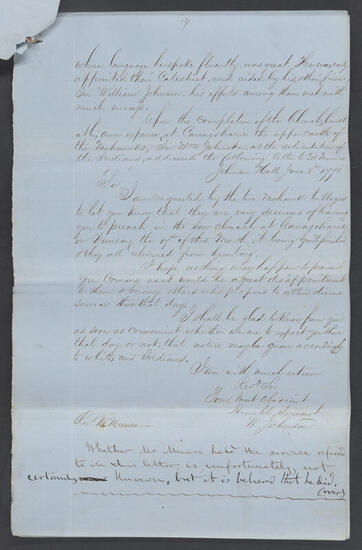 whose language he spoke fluently, was great. He was early
appointed their Catechist, and aided by his other friend,
Sir William Johnson, his efforts among them met with
much success.
Upon the completion of the Church, built
at his own expense, at Canajoharie the upper castle of
the Mohawks, Sir Wm Johnson, at the solicitation of
the Indians, addressed the following letter to Mr Munro
Johnson Hall, June 5th 1770
"Sir,
I am requested by the two Mohawk villages
to let you know that they are very desirous of having
you to preach in the new church at Canajoharie
on Sunday the 17th of this Month, it being
they all returned from hunting.
I hope nothing may happen to prevent
you coming as it would be a great disappointment
to them & many others who propose to attend divine
service there that day.
I shall be glad to know from you
as soon as convenient whether we are to expect you there
that day or not, that notice may be given accordingly
to whites and Indians.
I am with much esteem
Revd Sir
Your Most Obedient
Humble Servant
W. Johnson
Revd Mr Munro"
Whether Mr Munro held the service referred
to in this letter is unfortunately, not
certainly known, but it is believed that he did.
(over)